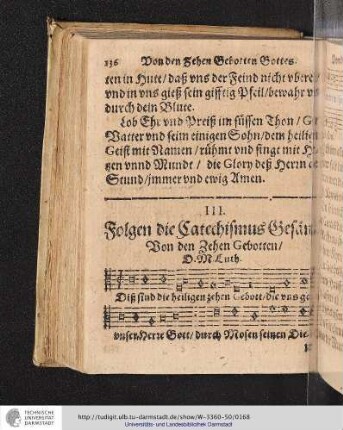 136 Von den Zehen Gebotten Gottes.
ten in Hute / daß vns der Feind nicht vbere
vnd in vns gieß sein gifftig Pfeil / bewahr vns
durch dein Blute.
Lob Ehr vnd Preiß im süssen Thon /
Vatter vnd seim einigen Sohn / dem heilien
Geist mit Namen / rühmt vnd singt mit
tzen vnnd Munde / die Glory deß Herrn
Stund / jmmer vnd ewig Amen.
III.
Folgen die Catechismus Gesän
Von den Zehen Gebotten /
D. M. Luth.
Diß sind die heiligen zehen Gebott / die vns ge
vnser Herre Gott / durch Mosen seinen Die-
TECHNISCHE
UNIVERSITÄT
DARMSTADT
http://tudigit.ulb.tu-darmstadt.de/show/W-3360-50/0168
Universitäts- und Landesbibliothek Darmstadt